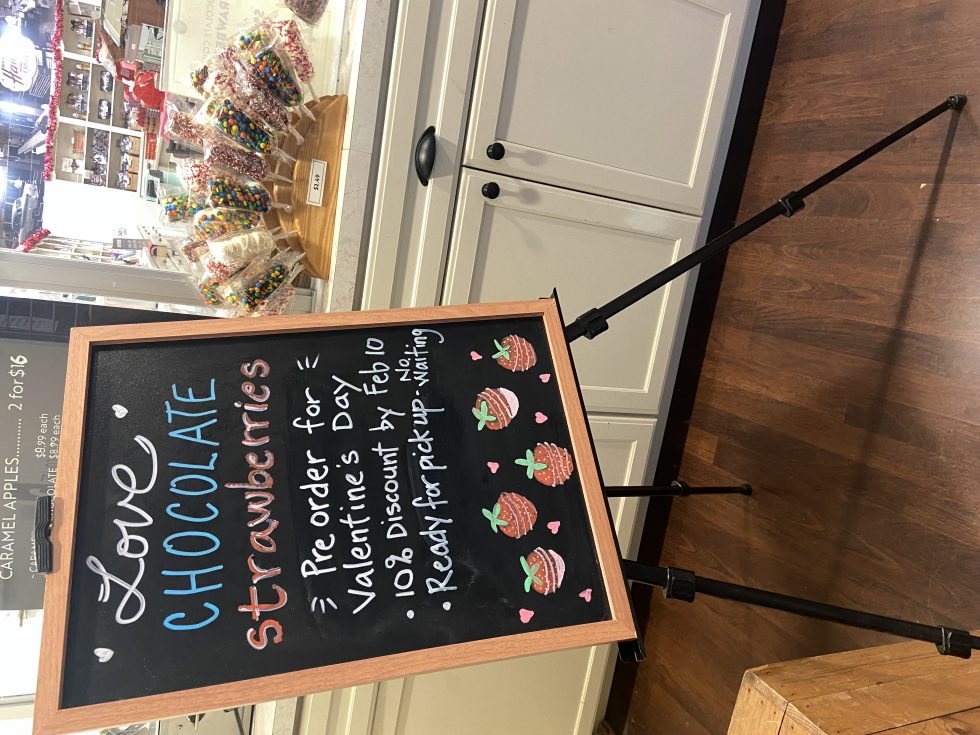 Love
CHOCOLATE
strawberries
Pre order for
Valentine's Day
• 10% Discount by Feb 10
• Ready for pick up - No waiting
CARAMEL APPLES............ 2 for $16
$8.99 each
$2.49